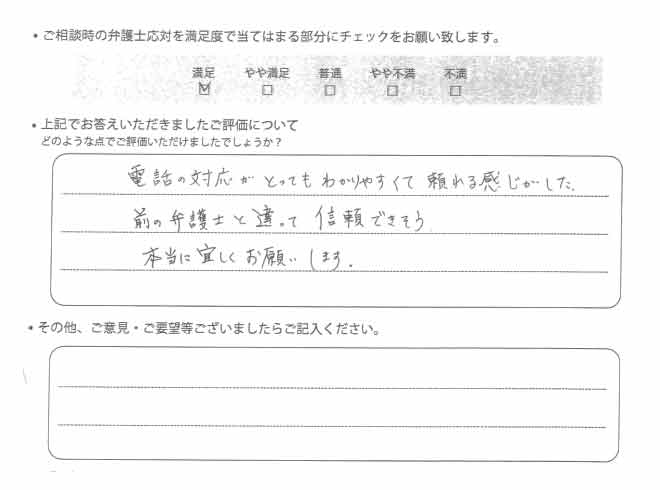 • ご相談時の弁護士応対を満足度で当てはまる部分にチェックをお願い致します。
満足 やや満足 普通 やや不満 不満
☑ □ □ □ □
• 上記でお答えいただきましたご評価について
どのような点でご評価いただけましたでしょうか？
電話の対応がとってもわかりやすくて頼れる感じがした。
前の弁護士と違って信頼できそう
本当に宜しくお願いします.
• その他、ご意見・ご要望等ございましたらご記入ください。